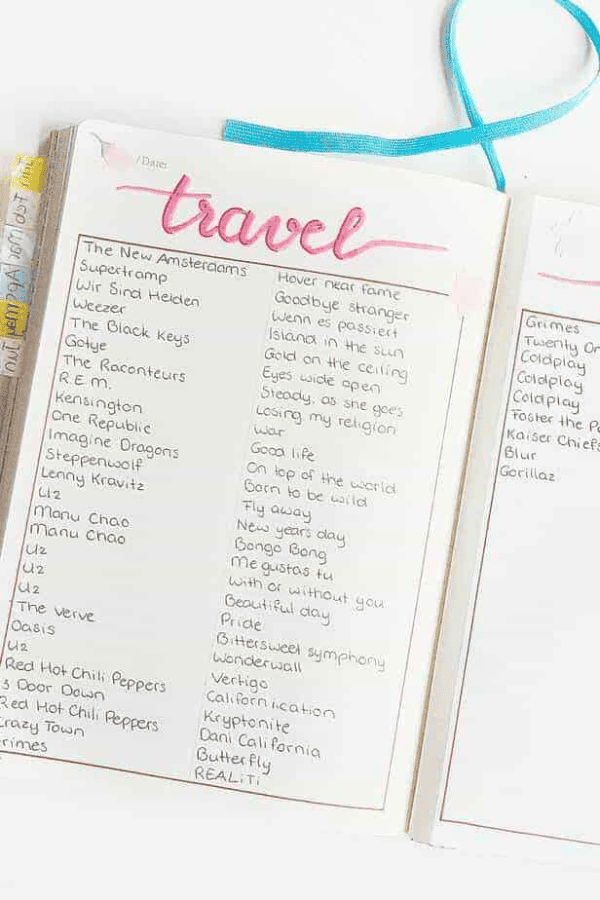 /Date:
travel
The New Amsterdams Hover near fame
Supertramp Goodbye stranger
Wir Sind Helden Wenn es passiert
Weezer Island in the sun
The Black Keys Gold on the ceiling
Gotye Eyes wide open
The Raconteurs Steady, as she goes
R.E.M. Losing my religion
Kensington War
One Republic Good life
Imagine Dragons On top of the world
Steppenwolf Born to be wild
Lenny Kravitz Fly away
U2 New years day
Manu Chao Bongo Bong
Manu Chao Me gustas tu
U2 With or without you
U2 Beautiful day
U2 Pride
The Verve Bittersweet symphony
Oasis Wonderwall
U2 Vertigo
Red Hot Chili Peppers Californication
3 Door Down Kryptonite
Red Hot Chili Peppers Dani California
Crazy Town Butterfly
Grimes REALiTi
Grimes
Twenty On
Coldplay
Coldplay
Coldplay
Foster the Pe
Kaiser Chiefs
Blur
Gorillaz